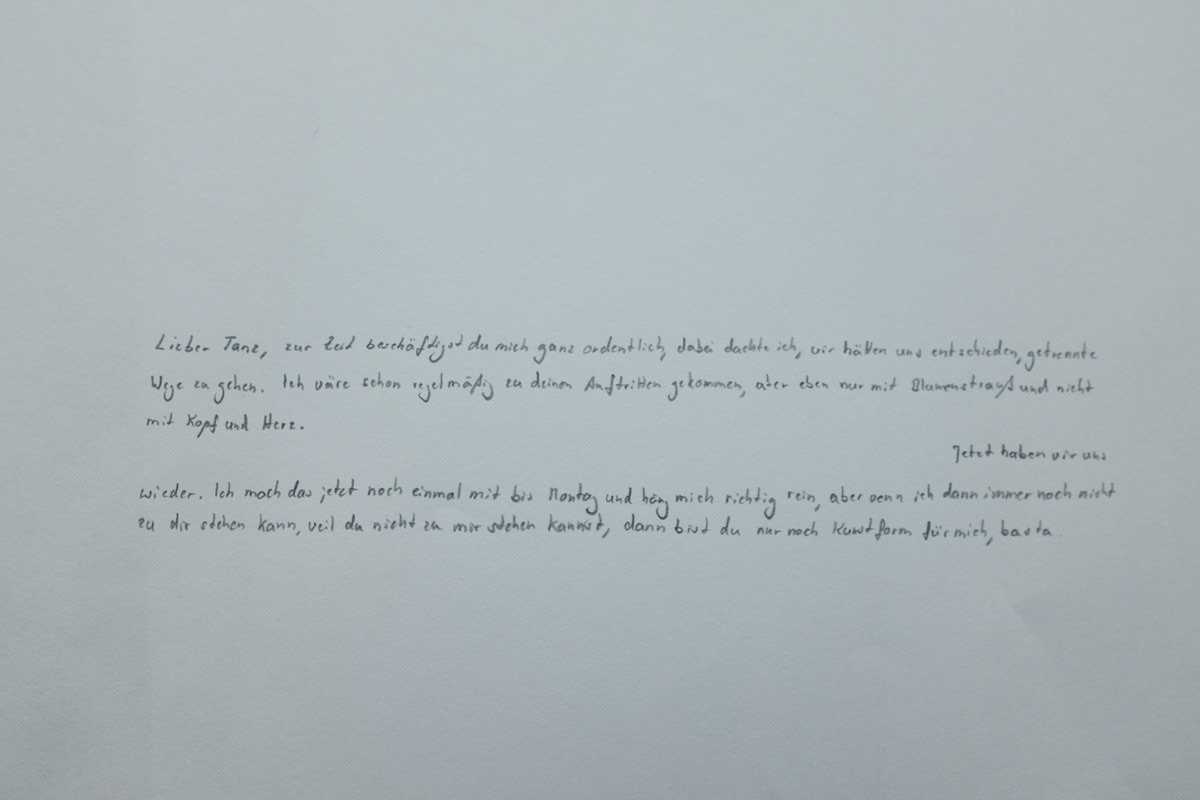 Lieber Tanz, zur Zeit beschäftigst du mich ganz ordentlich, dabei dachte ich, wir hätten uns entschieden, getrennte
Wege zu gehen. Ich wäre schon regelmäßig zu deinen Auftritten gekommen, aber eben nur mit Blumenstrauß und nicht
mit Kopf und Herz.
Jetzt haben wir uns
wieder. Ich mach das jetzt noch einmal mit bis Montag und häng mich richtig rein, aber wenn ich dann immer noch nicht
zu dir stehen kann, weil du nicht zu mir stehen kannst, dann bist du nur noch Kunstform für mich, basta.